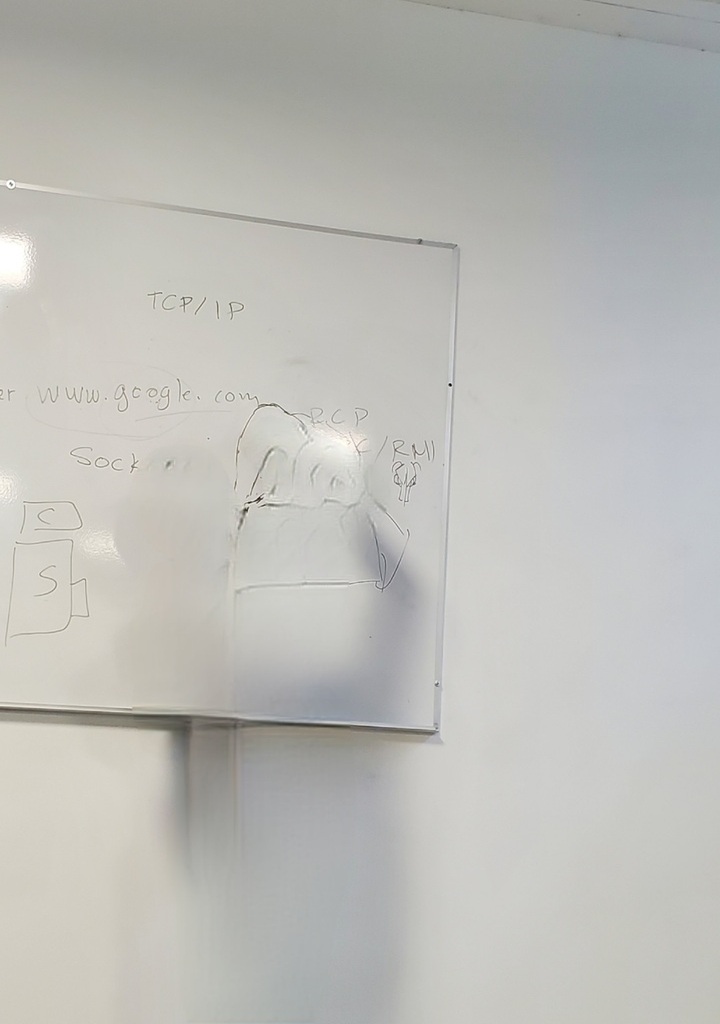 TCP/IP
er www.google.com
RCP
Sock
/RMI
C
S